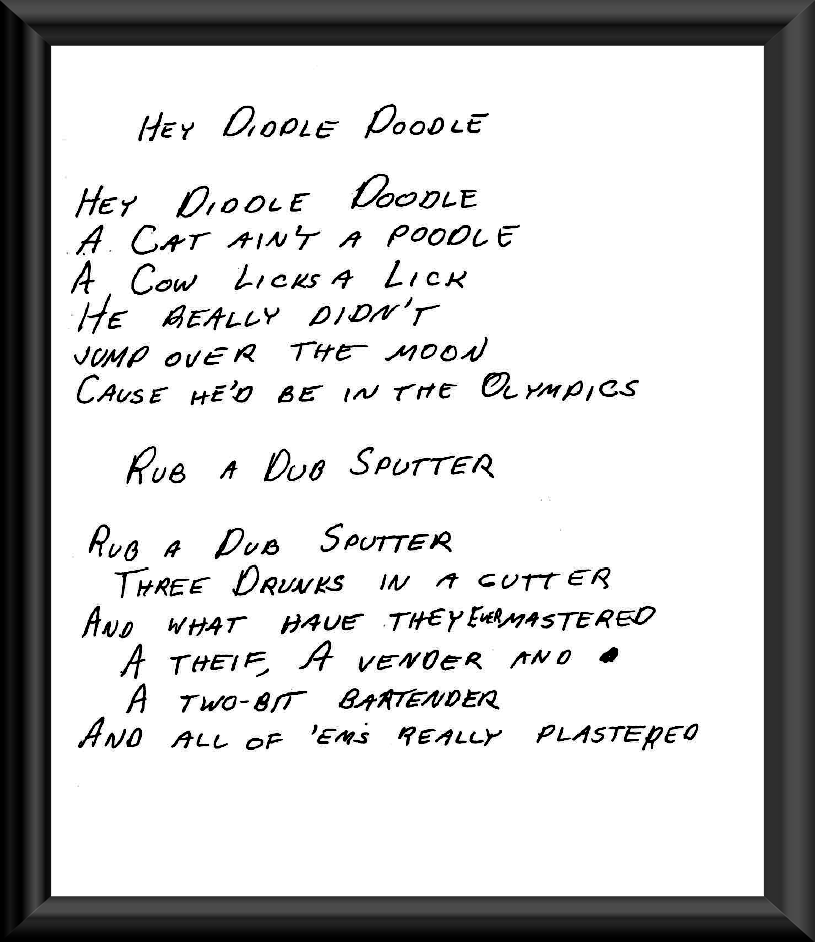 HEY DIDDLE DOODLE
HEY DIDDLE DOODLE
A CAT AIN'T A POODLE
A COW LICKS A LICK
HE REALLY DIDN'T
JUMP OVER THE MOON
CAUSE HE'D BE IN THE OLYMPICS
RUB A DUB SPUTTER
RUB A DUB SPUTTER
THREE DRUNKS IN A GUTTER
AND WHAT HAVE THEY EVER MASTERED
A THEIF, A VENDER AND
A TWO-BIT BARTENDER
AND ALL OF 'EM'S REALLY PLASTERED